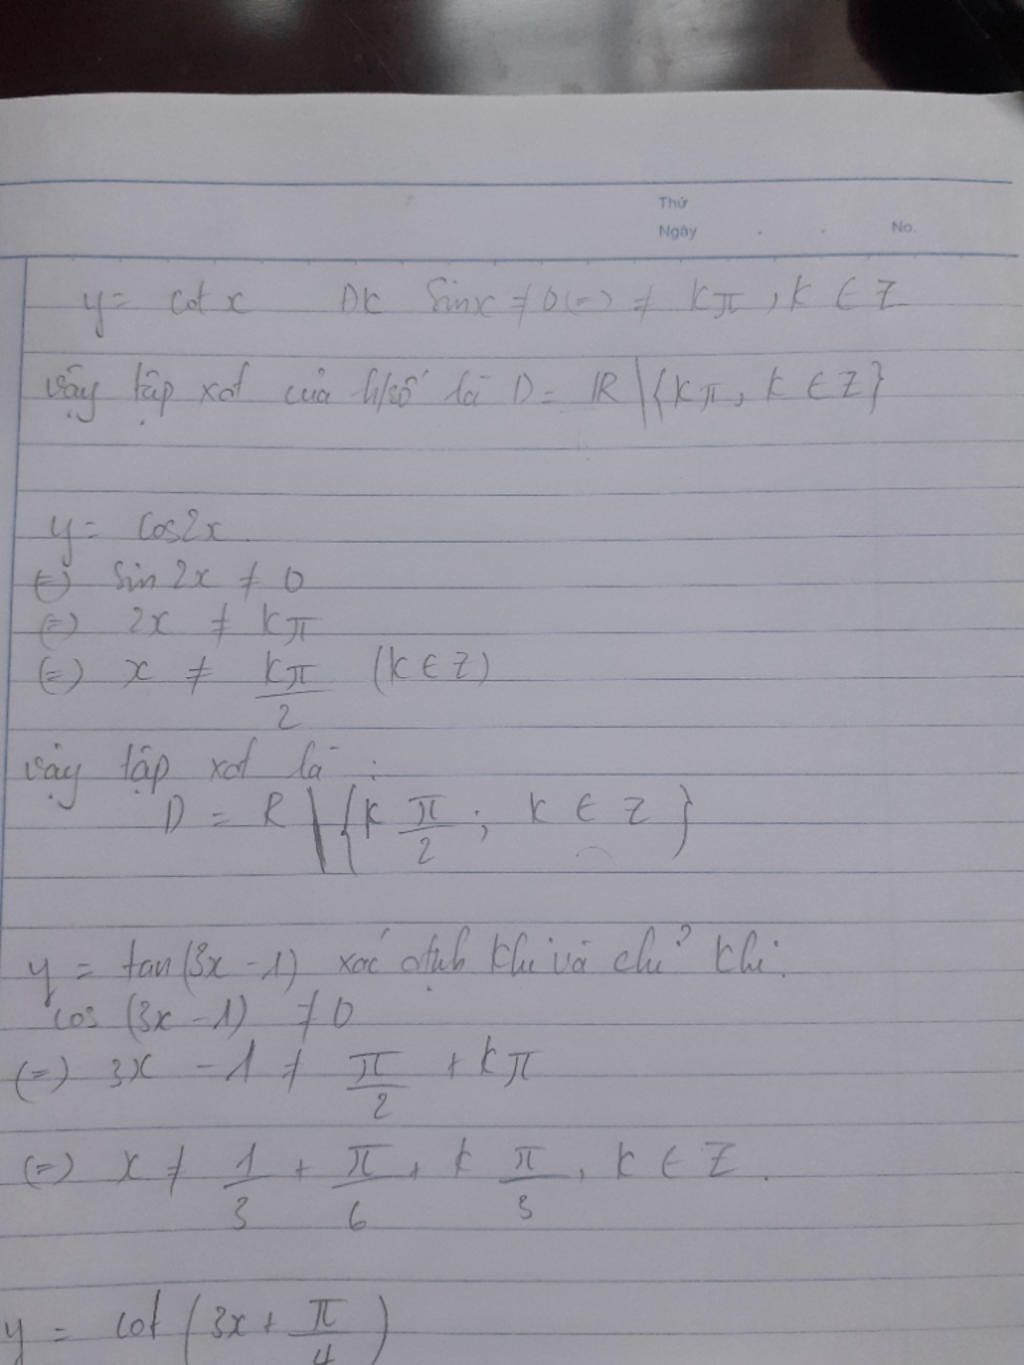 Thứ
Ngày . . No.
y = cot x ĐK sinx ≠ 0 (=) ≠ kπ, k ∈ Z
vậy tập xđ của h/số là D = R \ {kπ, k ∈ Z}
y = cos2x
(=) sin 2x ≠ 0
(=) 2x ≠ kπ
(=) x ≠ kπ/2 (k ∈ Z)
vậy tập xđ là :
D = R \ {k π/2 ; k ∈ Z}
y = tan(3x - 1) xác định khi và chỉ khi.
cos (3x - 1) ≠ 0
(=) 3x - 1 ≠ π/2 + kπ
(=) x ≠ 1/3 + π/6 + k π/3, k ∈ Z.
y = cot (3x + π/4)